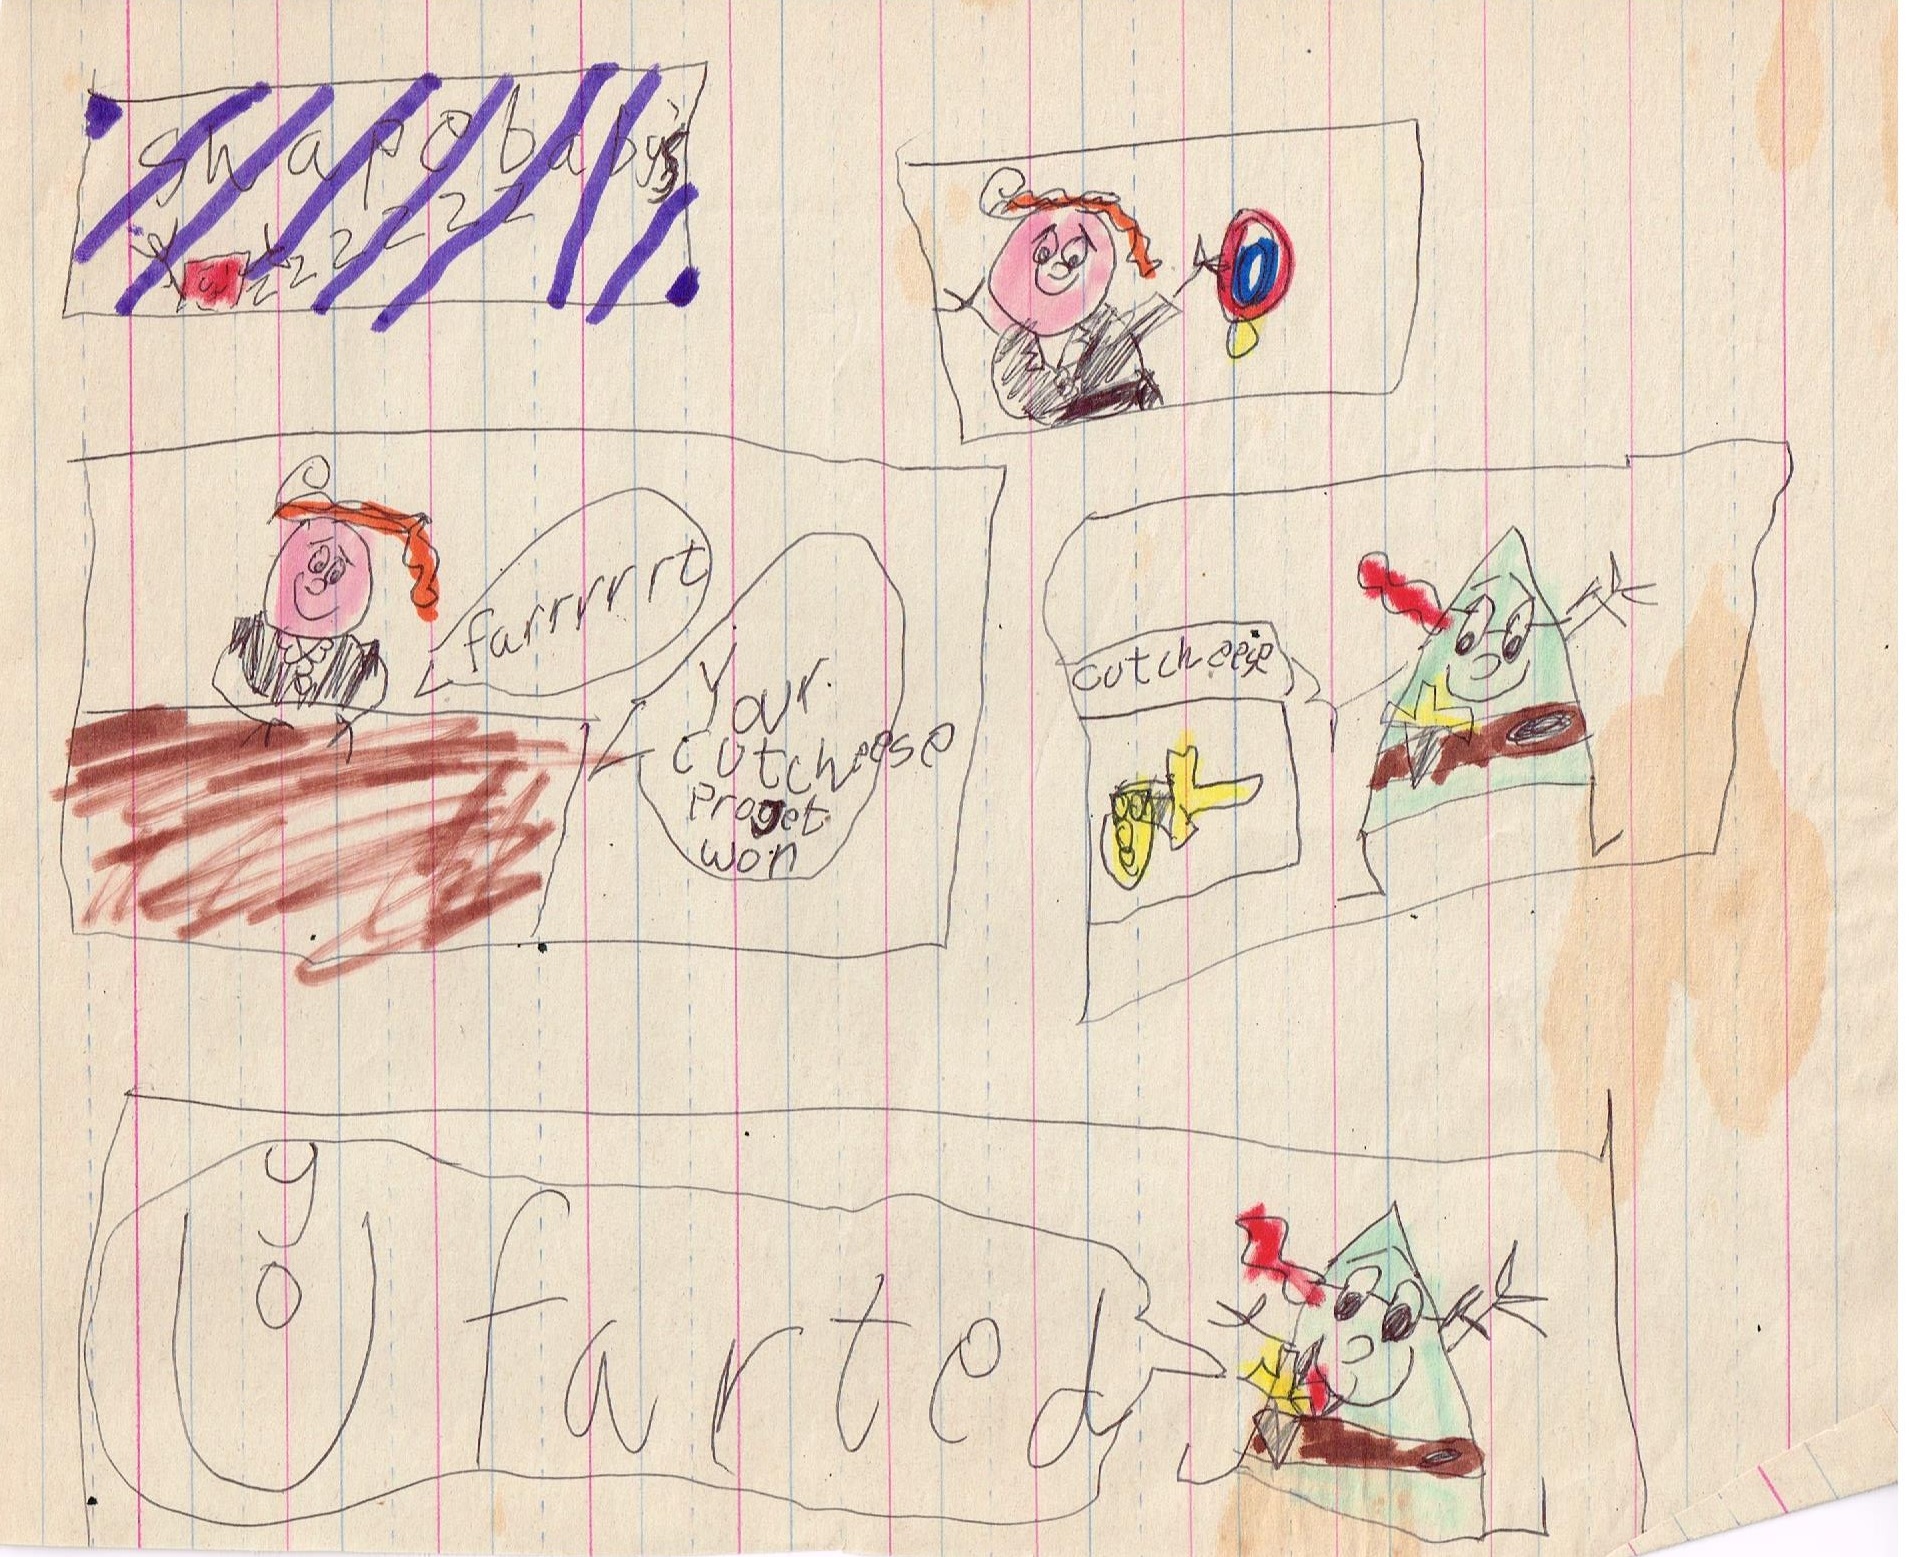 shapobabys
zzzzzzz
farrrrrt
Your
cutcheese
proget
won
cutcheese
yoU farted